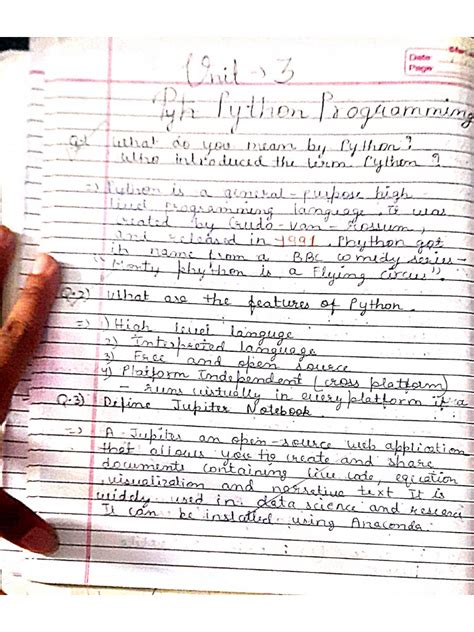 Date
Page
Unit → 3
Pyh Python Programming
Q.1 What do you mean by Python?
Who introduced the term Python?
=> Python is a general-purpose high
level programming language. It was
created by Guido-van-Rossum,
and released in 1991. Phython got
its name from a BBC comedy series-
"Monty phython is a Flying circus".
Q.2) What are the features of Python.
=> 1) High level languge
2) Interpreted language
3) Free and open source
4) Platform Independent (cross platform)
- runs virtually in every platform
Q.3) Define Jupiter Notebook.
=> A Jupiter an open-source web application
that allows you to create and share
documents containing live code, equation
, visualization and narrative text It is
widely used in data science and
It can be installed using Anaconda.